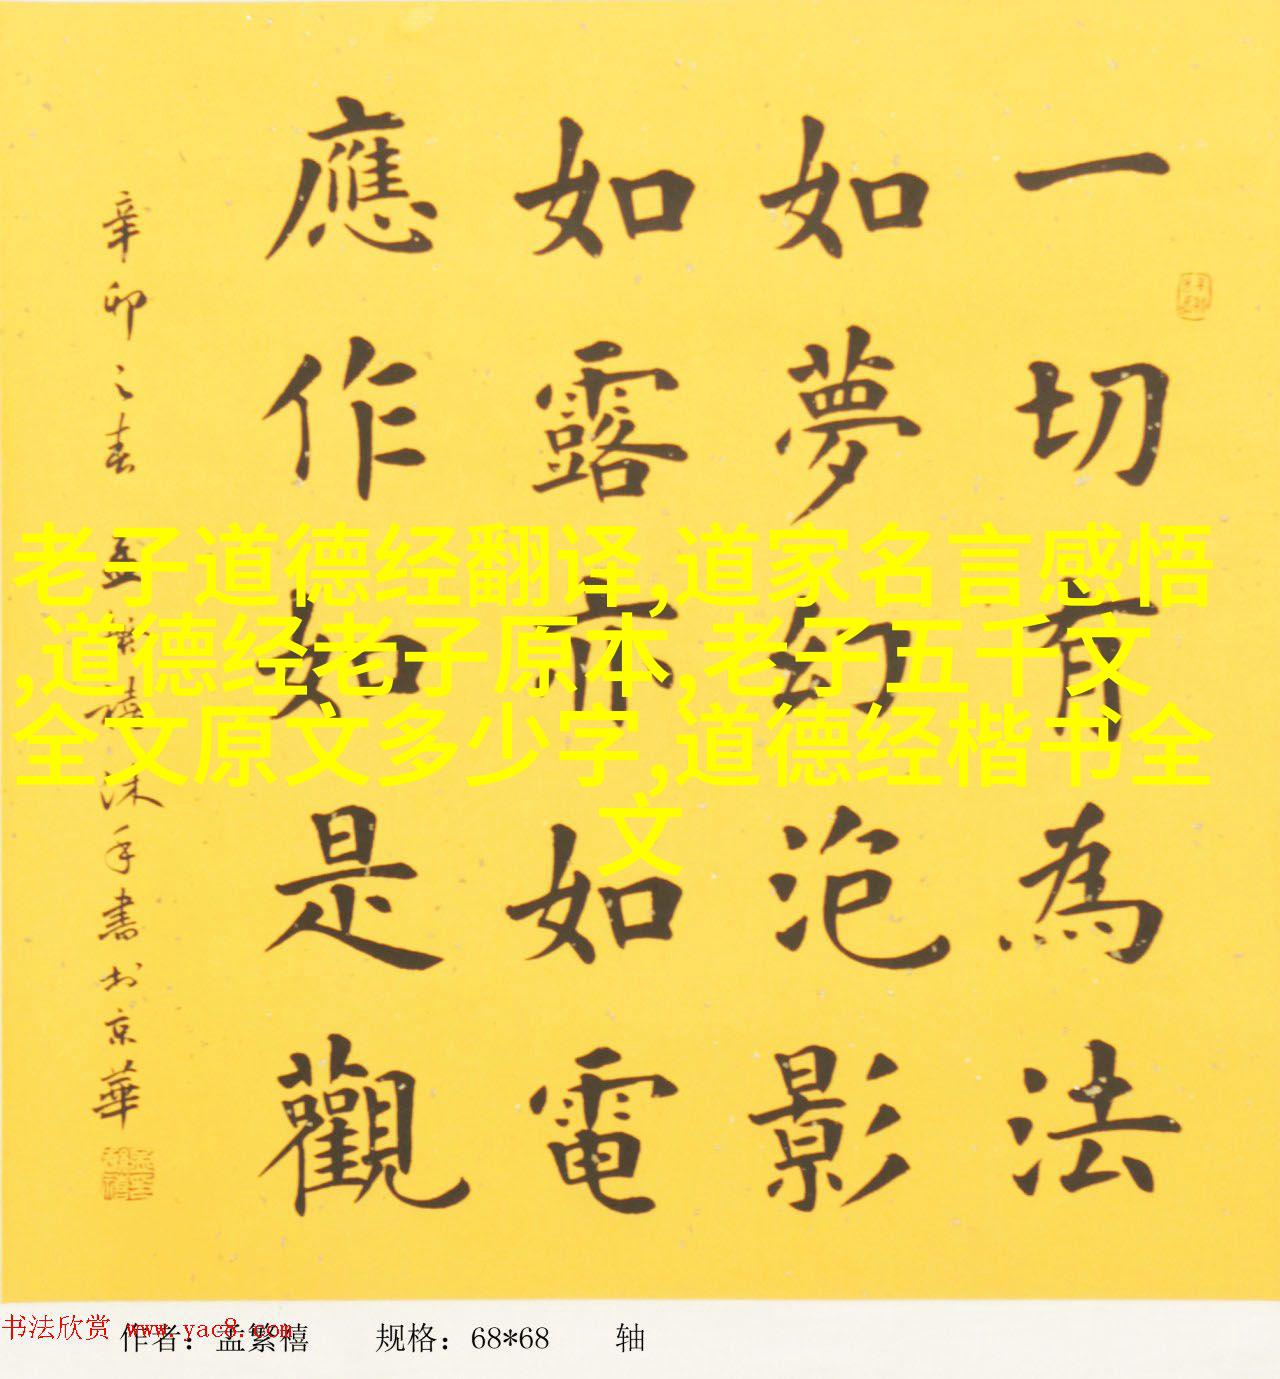 一切有為法
如夢幻泡影
如露亦如電
應作如是觀
辛卯之春 孟繁禧沐手書於京華
老子道德经翻译,道家名言感悟
,道德经老子原本,老子五千文
全文原文多少字,道德经楷书全
文
书法欣赏 www.yac8.com
作者：孟繁禧 规格：68*68 轴